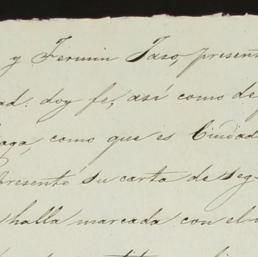 y Fermin Jaso, present
ad. doy fe, así como de
aga, como que es Ciudad
presentó su carta de seg
halla marcada con el